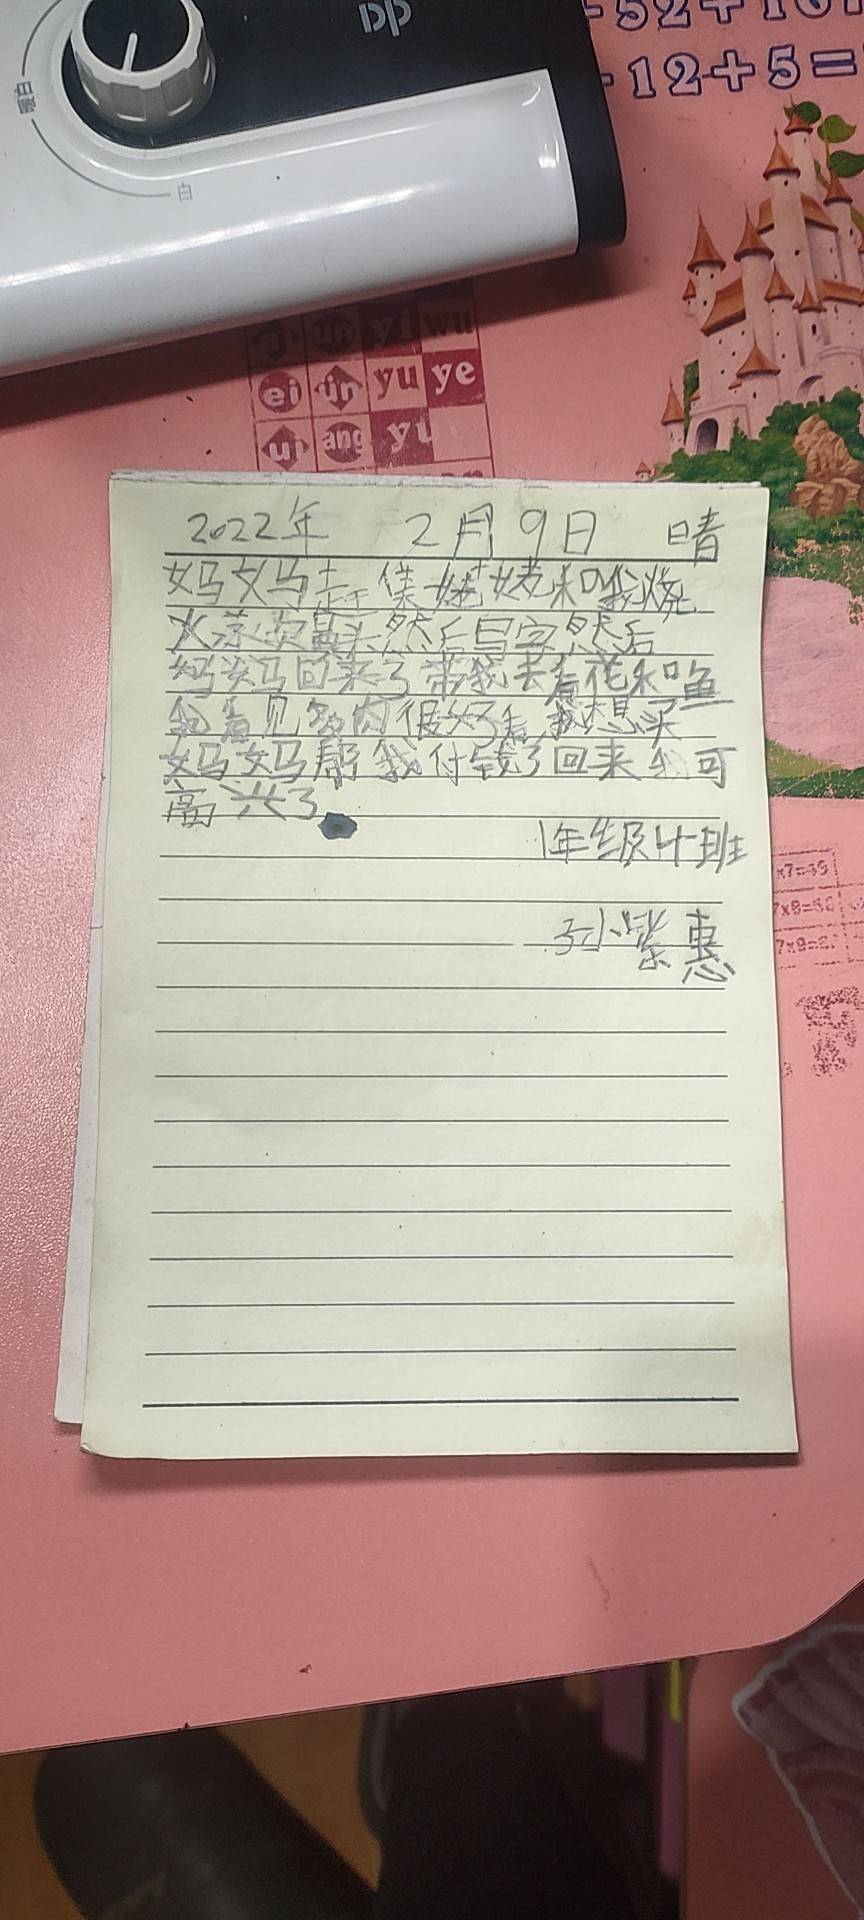 DP
暖白
白
-52+16
-12+5=
a un yi wu
ei ün yu ye
ui ang yu
2022年 2月9日 晴
妈妈走 姥姥和我烧
火 然后写字然后
妈妈回来了带我去看花和鱼
我看见多肉很好看我想买
妈妈帮我付钱了回来我可
高兴了
1年级4班
孙紫惠
x7=49
7x8=56